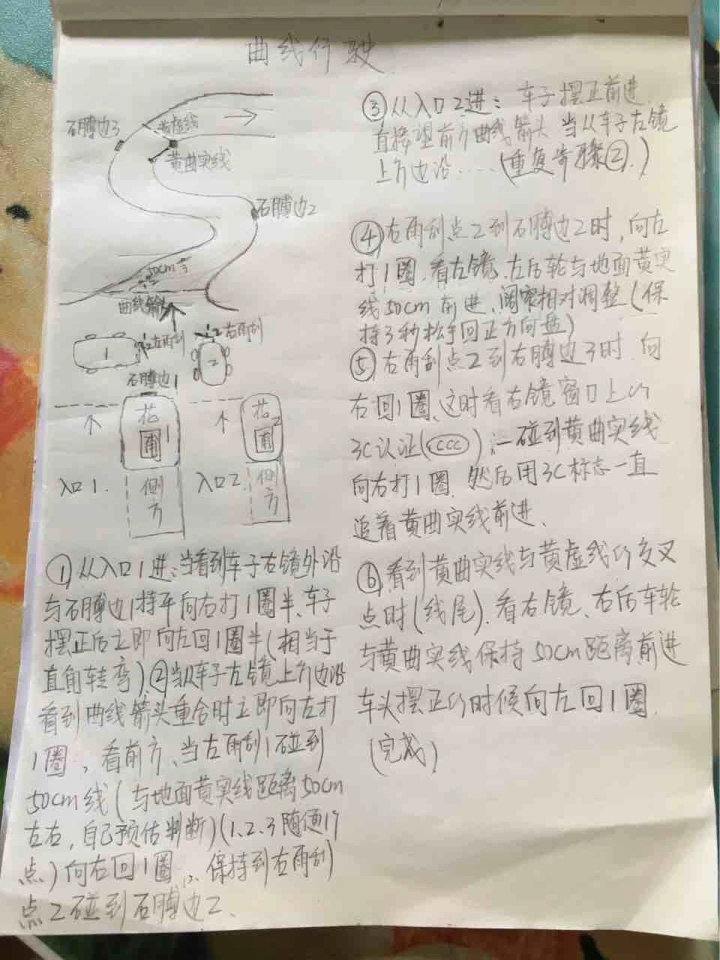 曲线行驶
石膊边3
黄虚线
黄曲实线
石膊边2
50cm
1 2 3
曲线箭头
1
1 2左雨刮
1 2右雨刮
2
石膊边1
1
2
入口1.
倒方
入口2.
倒方
①从入口1进:当看到车子右镜外沿
与石膊边1持平向右打1圈半、车子
摆正后立即向左回1圈半(相当于
直角转弯)②当从车子左镜上方边沿
看到曲线箭头重合时立即向左打
1圈,看前方、当左雨刮1碰到
50cm线(与地面黄实线距离50cm
左右,自己预估判断)(1、2、3随便1个
点)向右回1圈,保持到右雨刮
点2碰到石膊边2、
③从入口2进:车子摆正前进
直接望前方曲线箭头 当从车子左镜
上方边沿……(重复步骤②.)
④右雨刮点2到石膊边2时,向左
打1圈.看左镜、左后轮与地面黄实
线50cm前进、阔窄相对调整(保
持3秒松手回正方向盘)
⑤左雨刮点2到石膊边3时、向
右回1圈、这时看右镜窗口上的
3C认证(CCC);一碰到黄曲实线
向右打1圈.然后用3C标志一直
追着黄曲实线前进、
⑥看到黄曲实线与黄虚线的交叉
点时(线尾)、看右镜、右后车轮
与黄曲实线保持50cm距离前进
车头摆正的时候向左回1圈.
(完成)